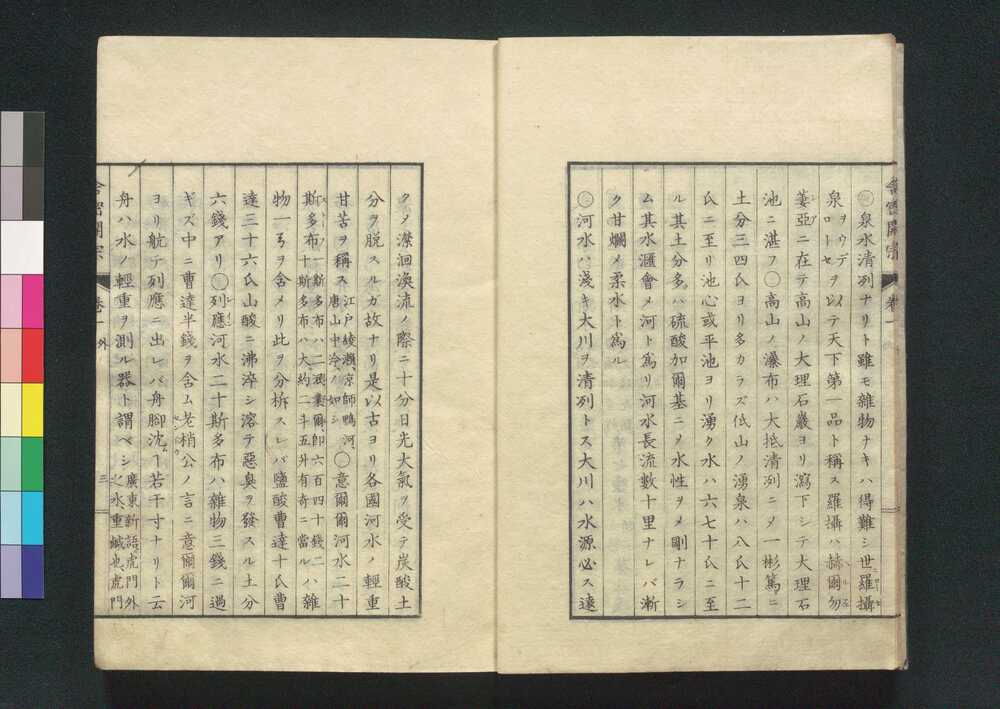 泉水清列ナリト雖モ雜物ナキハ得難シ世羅攝
泉ヲウデヲ以テ天下第一品ト稱ス羅攝ハ赫爾勿
ロトセ
萋亞ニ在テ高山ノ大理石巖ヨリ瀉下シテ大理石
池ニ湛フ〇高山ノ瀑布ハ大抵清列ニメ一彬篤ニ
土分三四氏ヨリ多カラズ低山ノ湧泉ハ八氏十二
氏ニ至リ池心或平池ヨリ湧ク水ハ六七十氏ニ至
ル其土分多ハ硫酸加爾基ニメ水性ヲメ剛ナラシ
ム其水滙會メ河ト爲リ河水長流數十里ナレバ漸
ク甘爛メ柔水ト爲ル
河水ハ浅キ大川ヲ清列トス大川ハ水源必ス遠
舎密開宗 巻一
クメ瀠洄渙流ノ際ニ十分日光大氣ヲ受テ炭酸土
分ヲ脱スルガ故ナリ是以古ヨリ各國河水ノ輕重
甘苦ヲ稱ス江戸綾瀬、京師鴨河、唐山中冷ノ如シ〇意爾爾河水二十
斯多布一斯多布ハ二十斯多布ハ大約二斗五升有奇ニ當ルハ雜
物一弓ヲ舍メリ此ヲ分柝スレバ鹽酸曹達十氏曹
達三十六氏山酸ニ沸淬シ溶テ惡臭ヲ發スル土分
六錢アリ〇列應河水二十斯多布ハ雜物三錢ニ過
ギズ中ニ曹達半錢ヲ含ム老梢公ノ言ニ意爾爾河
ヨリ航テ列應ニ出レバ舟脚沈ム⼀若干寸ナリト云
舟ハ水ノ輕重ヲ測ル器ト謂ベシ廣東新語、虎門外之水、重鹹也、虎門
舎密開宗 巻一 外 三